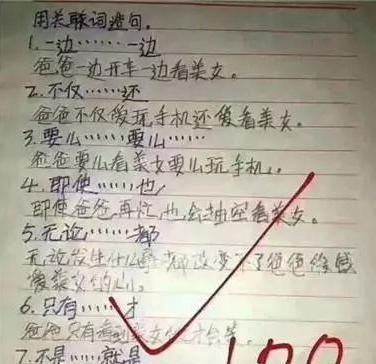 用关联词造句。
1.一边……一边
爸爸一边开车一边看美女。
2.不仅……还
爸爸不仅爱玩手机还爱看美女。
3.要么……要么……
爸爸要么看美女要么玩手机。
4.即使……也
即使爸爸再忙,也会抽空看美女。
5.无论……都
无论发生什么事都改变不了爸爸
爱美女的心。
6.只有……才
爸爸只有看到美女才会笑。
7.不是……就是
100